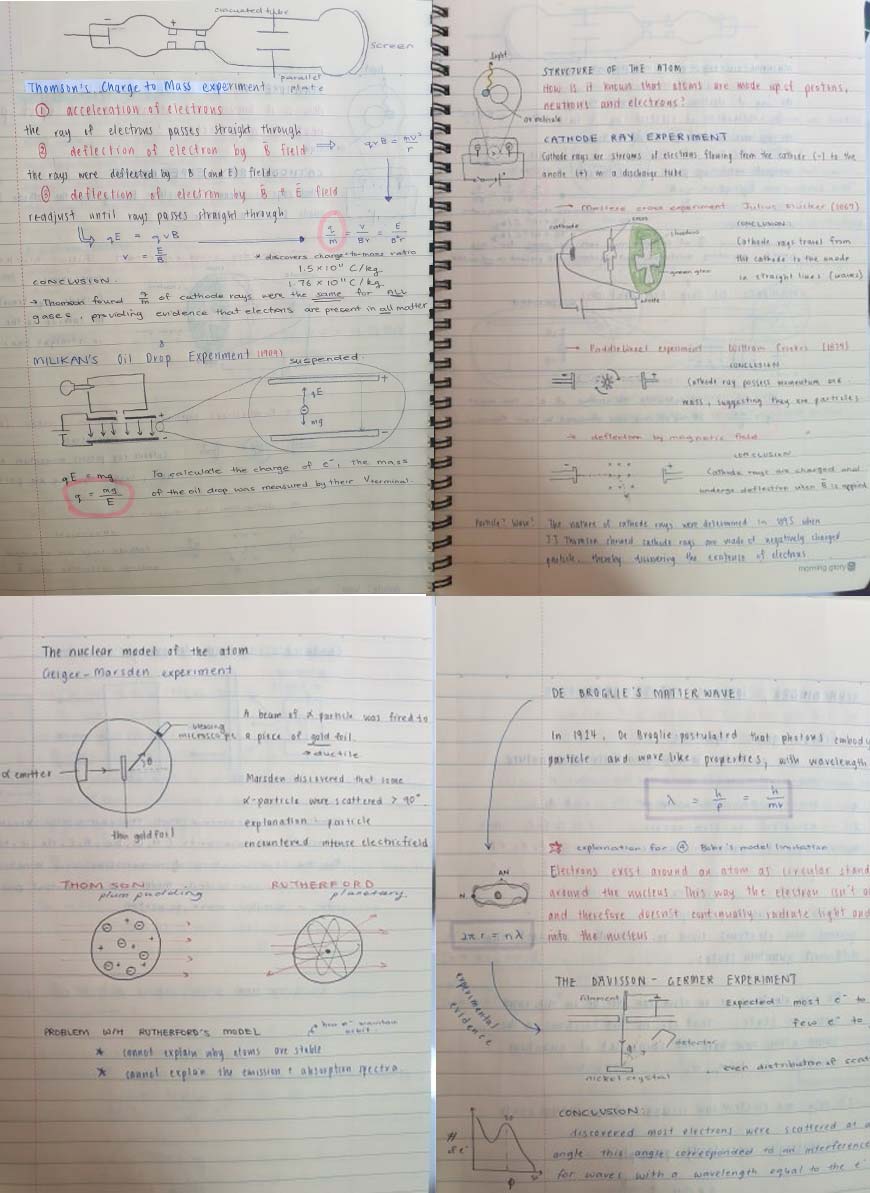 evacuated tube
screen
parallel
plate
Thomson's Charge to Mass experiment
① acceleration of electrons
the ray of electrons passes straight through
② deflection of electron by B field ⇒ qvB = mv²/r
the rays were deflected by B (and E) field
③ deflection of electron by B & E field
readjust until rays passes straight through
qE = qvB
q/m = v/Br = E/B²r
v = E/B
* discovers charge-to-mass ratio
1.5 × 10¹¹ C/kg
1.76 × 10¹¹ C/kg
CONCLUSION
→ Thomson found q/m of cathode rays were the same for ALL
gases, providing evidence that electrons are present in all matter
MILIKAN'S Oil Drop Experiment (1909)
suspended
qE
mg
qE = mg
To calculate the charge of e⁻, the mass
q = mg/E
of the oil drop was measured by there Vterminal
light
STRUCTURE OF THE ATOM
How is it known that atoms are made up of protons,
neutrons and electrons?
CATHODE RAY EXPERIMENT
Cathode rays are streams of electrons flowing from the cathode (-) to the
anode (+) in a discharge tube
→ Maltese cross experiment Julius Plücker (1869)
cathode
cross
shadow
green glow
anode
CONCLUSION:
Cathode rays travel from
the cathode to the anode
in straight lines (waves)
→ Paddlewheel experiment William Crookes (1879)
CONCLUSION
Cathode ray possess momentum and
mass, suggesting they are particles
→ deflection by magnetic field
CONCLUSION
Cathode rays are charged and
undergo deflection when B is applied
Particle? Wave?
The nature of cathode rays were determined in 1895 when
JJ Thomson showed cathode rays are made of negatively charged
particle, thereby discovering the existence of electrons
morning glory
The nuclear model of the atom
Geiger-Marsden experiment
viewing
microscope
α emitter
θ
thin gold foil
A beam of α particle was fired to
a piece of gold foil
→ ductile
Marsden discovered that some
α-particle were scattered > 90°
explanation: particle
encountered intense electric field
THOMSON
plum pudding
RUTHERFORD
planetary
PROBLEM W/H RUTHERFORD'S MODEL
how e⁻ maintain
orbit
* cannot explain why atoms are stable
* cannot explain the emission & absorption spectra
DE BROGLIE'S MATTER WAVE
In 1924, De Broglie postulated that photons embody
particle and wave like properties, with wavelength
λ = h/p = h/mv
explanation for ④ Bohr's model limitation
AN
N
2πr = nλ
Electrons exist around an atom as circular stand
around the nucleus. This way the electron isn't a
and therefore doesn't continually radiate light and
into the nucleus
experimental
evidence
THE DAVISSON - GERMER EXPERIMENT
filament
detector
nickel crystal
Expected: most e⁻ to
few e⁻ to
even distribution of scat
CONCLUSION:
discovered most electrons were scattered at a
angle this angle corresponded to an interference
for waves with a wavelength equal to the e⁻
#
of e⁻
φ